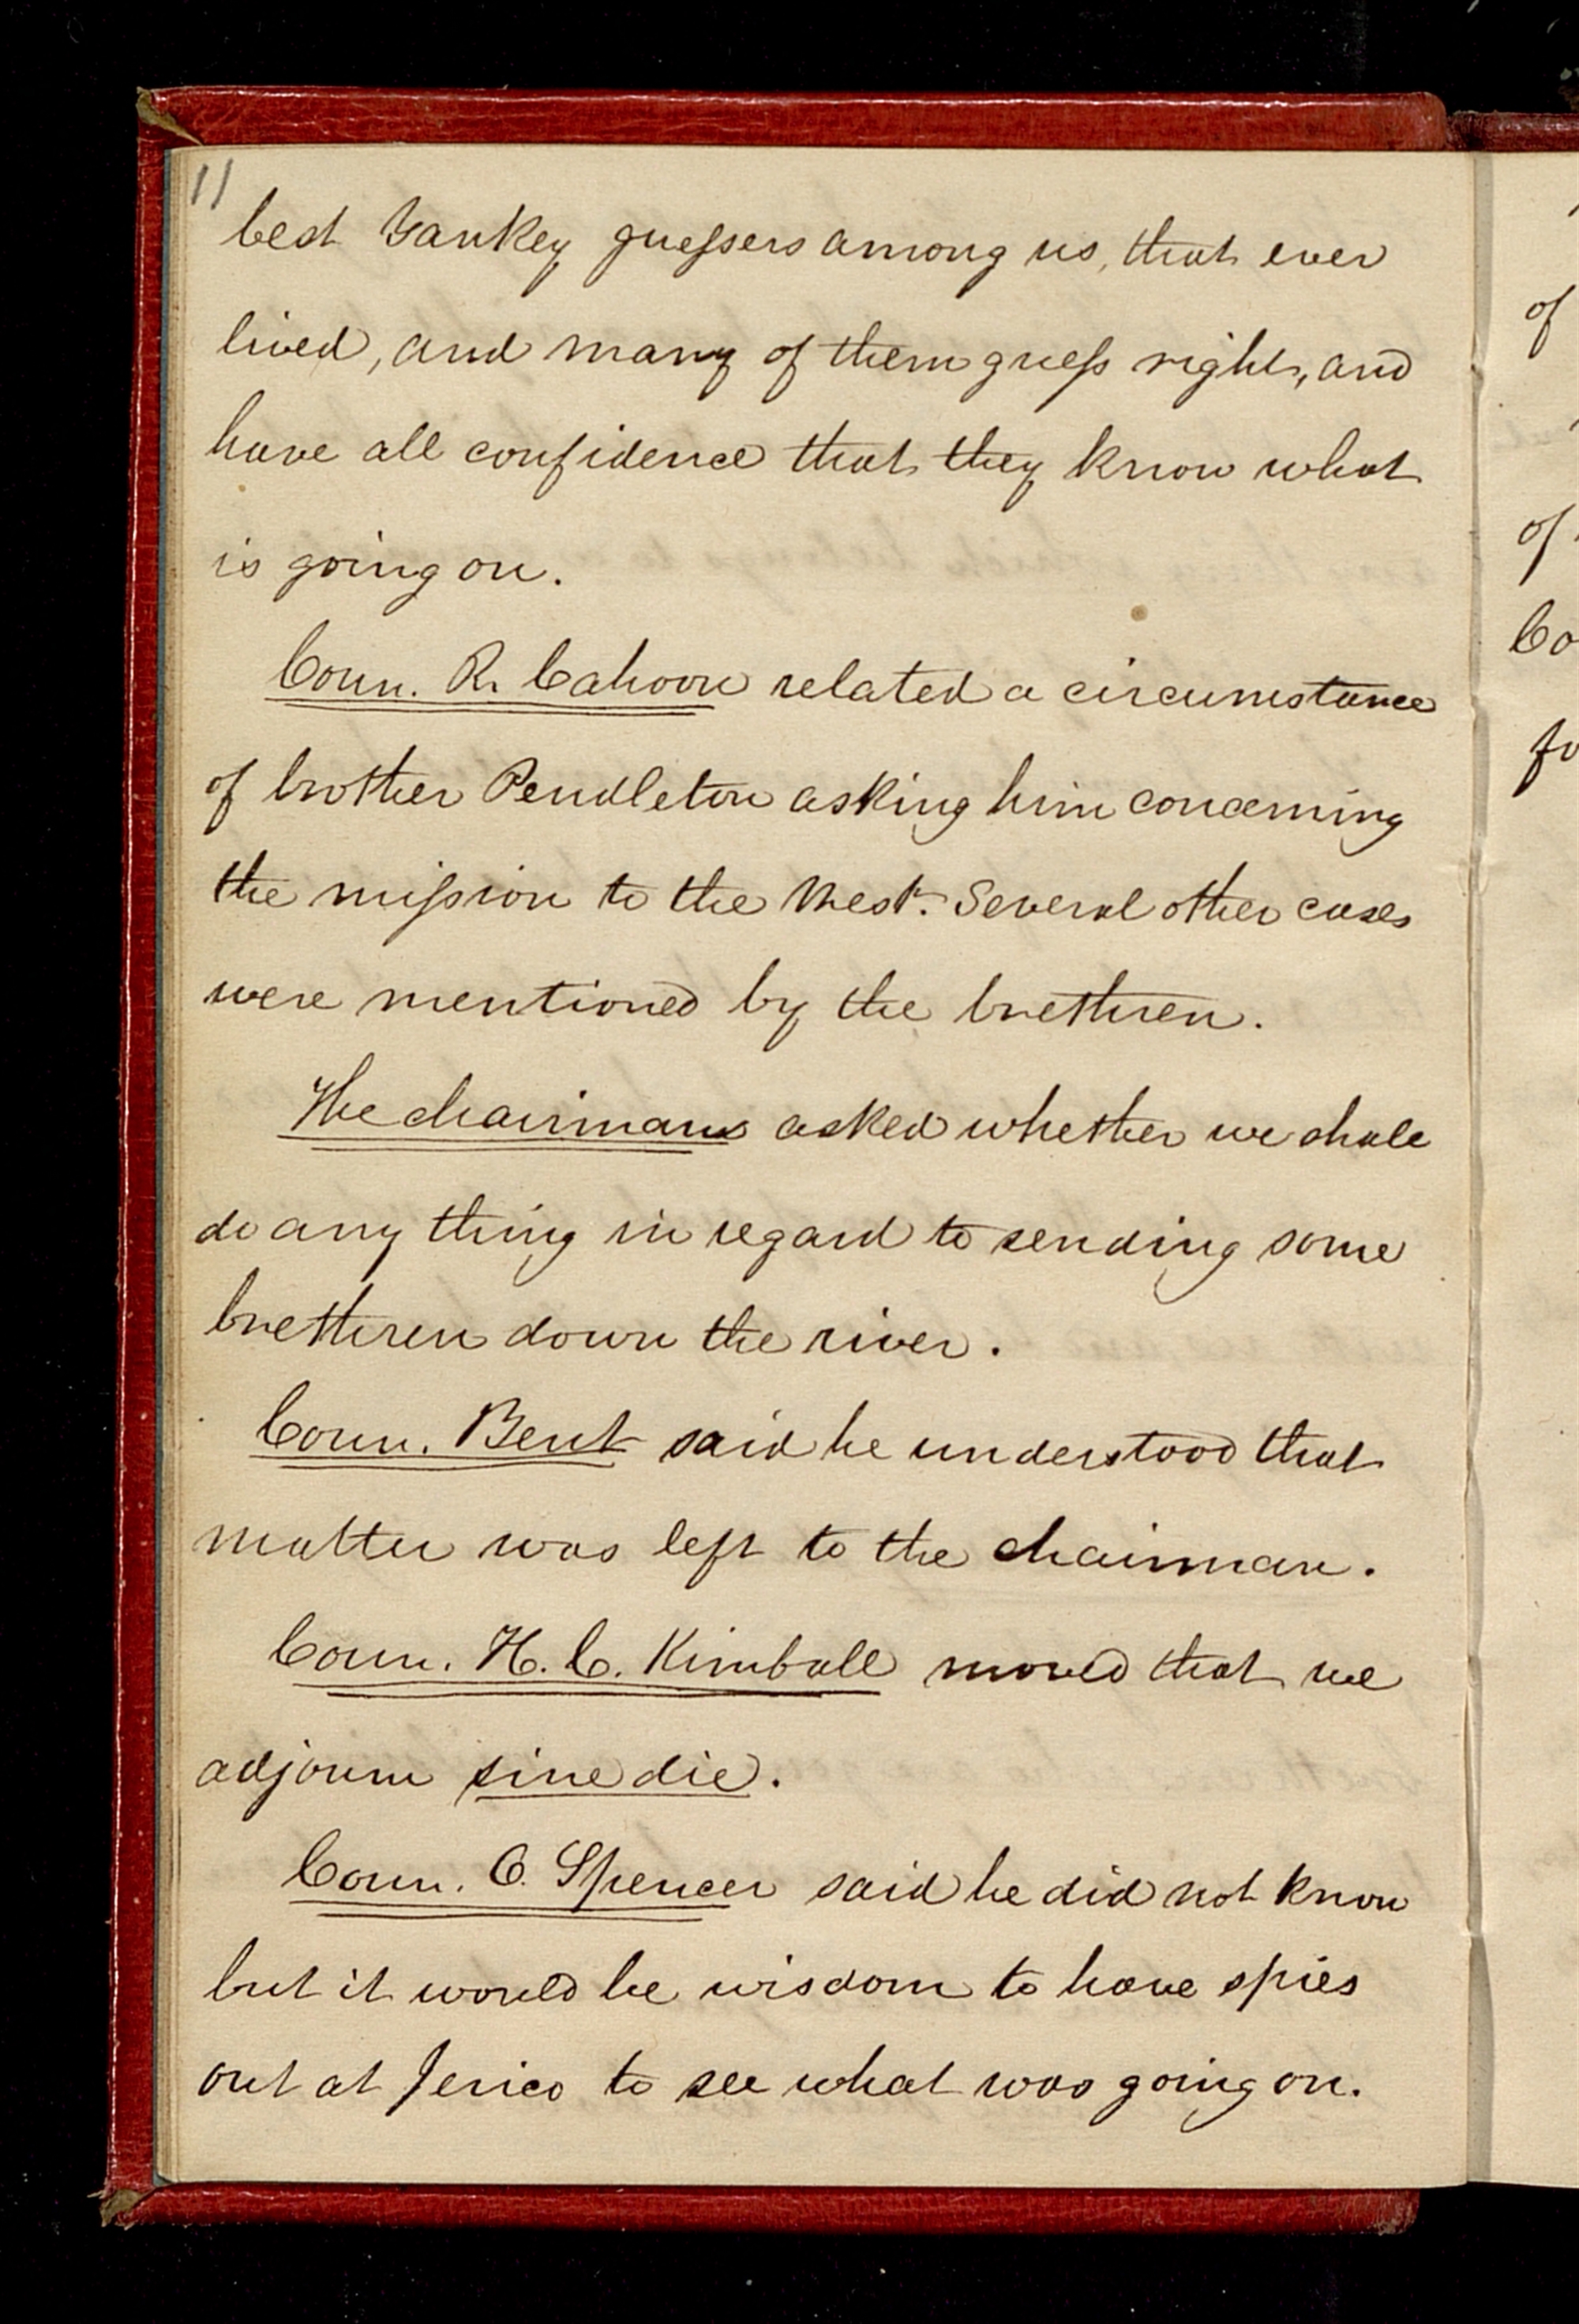 11
best Yankey guessers among us, that ever
lived, and many of them guess right, and
have all confidence that they know what
is going on.
Coun. R. Cahoon related a circumstance
of brother Pendleton asking him concerning
the mission to the West. Several other cases
were mentioned by the brethren.
The chairman asked whether we shall
do any thing in regard to sending some
brethren down the river.
Coun. Bent said he understood that
matter was left to the chairman.
Coun. H. C. Kimball moved that we
adjourn sine die.
Coun. O. Spencer said he did not know
but it would be wisdom to have spies
out at Jerico to see what was going on.
of
of
Co
fo